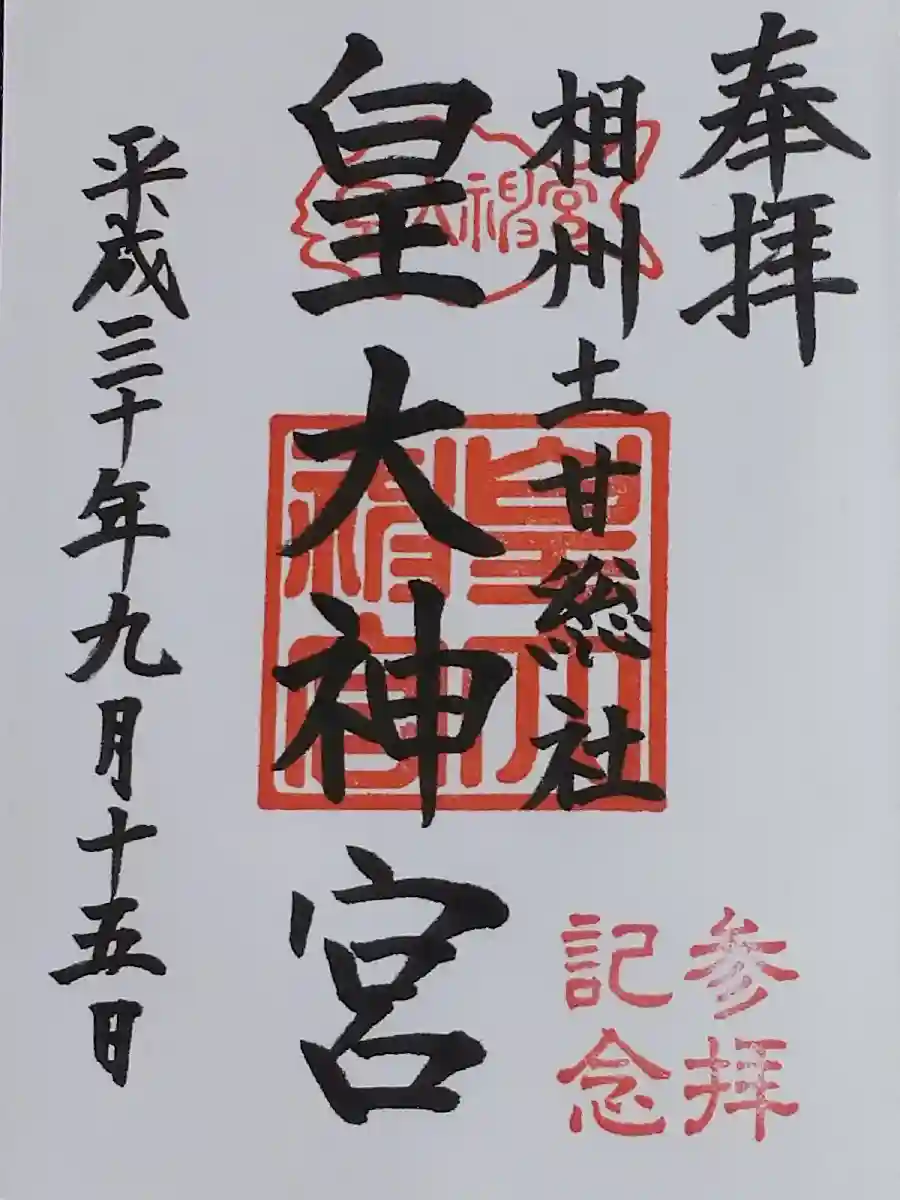 奉拝
相州土甘総社
皇大神宮
平成三十年九月十五日
皇大神宮
皇大神宮
参拝
記念